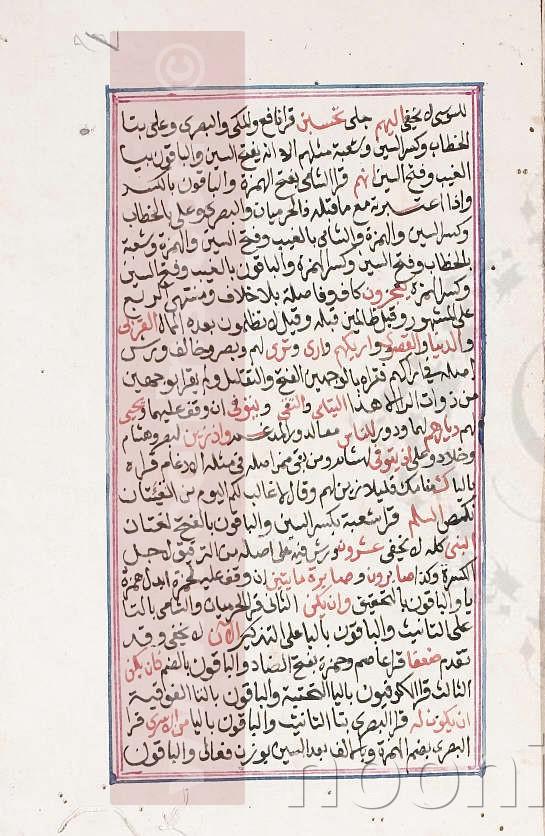 للسوسي لا يخفى اليهم جلي تحسبن قرا نافع والمكي والبصري وعلي بتا
الخطاب وكسر السين وشعبة مثلهم الا انه يفتح السين والباقون بيا
الغيب وفتح السين انهم قرا الشامي بفتح الهمزة والباقون بالكسر
واذا اعتبرته مع ما قبله فالحرميان والبصري وعلي بالخطاب
وكسر السين والهمزة والشامي بالغيب وفتح السين والهمزة وشعبة
بالخطاب وفتح السين وكسر الهمزة والباقون بالغيب وفتح السين
وكسر الهمزة يعجزون كاف وفاصلة بلا خلاف ومنتهى الربع
على المشهور وقيل ظالمين قبله وقيل لا تظلمون بعده الممال القربى
والدنيا والقصوى واريكهم وارى وترى لهم وبصر وخالف ورش
اصله في اراكهم فقراه بالوجهين الفتح والتقليل ولم يقرا بوجهين
من ذوات الراء الا هذا اليتامى والتقى ويتوفى ان وقف عليهما ويحيى
لهم ديارهم لهما ودور للناس لدور المدغم واذ زين لبصر وهشام
وخلاد وعلي اذ يتوفى لهشام اصله في مثله الادغام قراه
باليا كثير زين لهم وقال لا غالب لكم اليوم من الفئتان
نكص السلم قرا شعبة بكسر السين والباقون بالفتح لغتان
النبي كله لا يخفى عشرون ورش فيه على اصله من الترقيق لاجل
الكسرة وكذا صابرون وصابرة مايتين ان وقف عليه لحمزة ابدل همزه
يا والباقون بالتحقيق وان يكن الثاني قرا الحرميان والشامي بالتا
على التانيث والباقون باليا على التذكير الان لا يخفى وقد
تقدم ضعفا قرا عاصم وحمزة بفتح الضاد والباقون بالضم فان يكن
الثالث قرا الكوفيون باليا التحتية والباقون بالتا الفوقية
ان يكون له قرا البصري بتا التانيث والباقون باليا من الاسرى قرا
البصري بضم الهمزة وبالف بعد السين بوزن فعالى والباقون